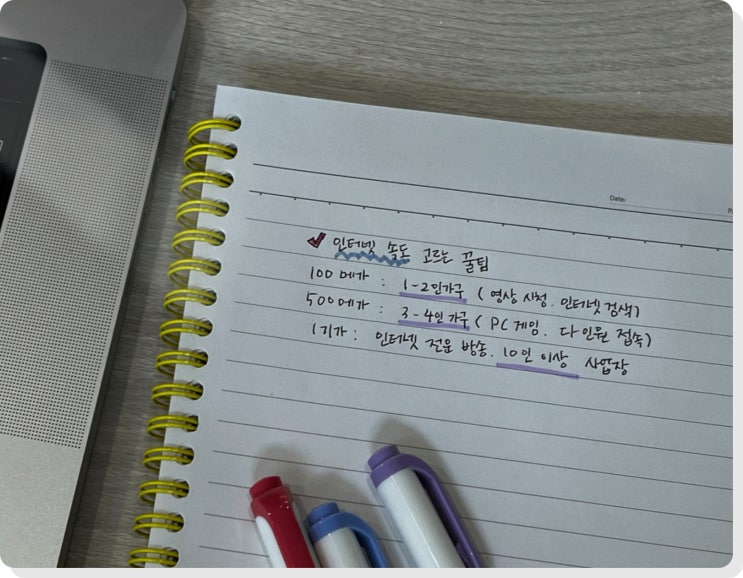 Date:
✓ 인터넷 속도 고르는 꿀팁
100 메가 : 1-2인가구 ( 영상 시청. 인터넷 검색)
500 메가 : 3-4인 가구 ( PC 게임. 다인원 접속)
1기가 : 인터넷 전문 방송. 10인 이상 사업장